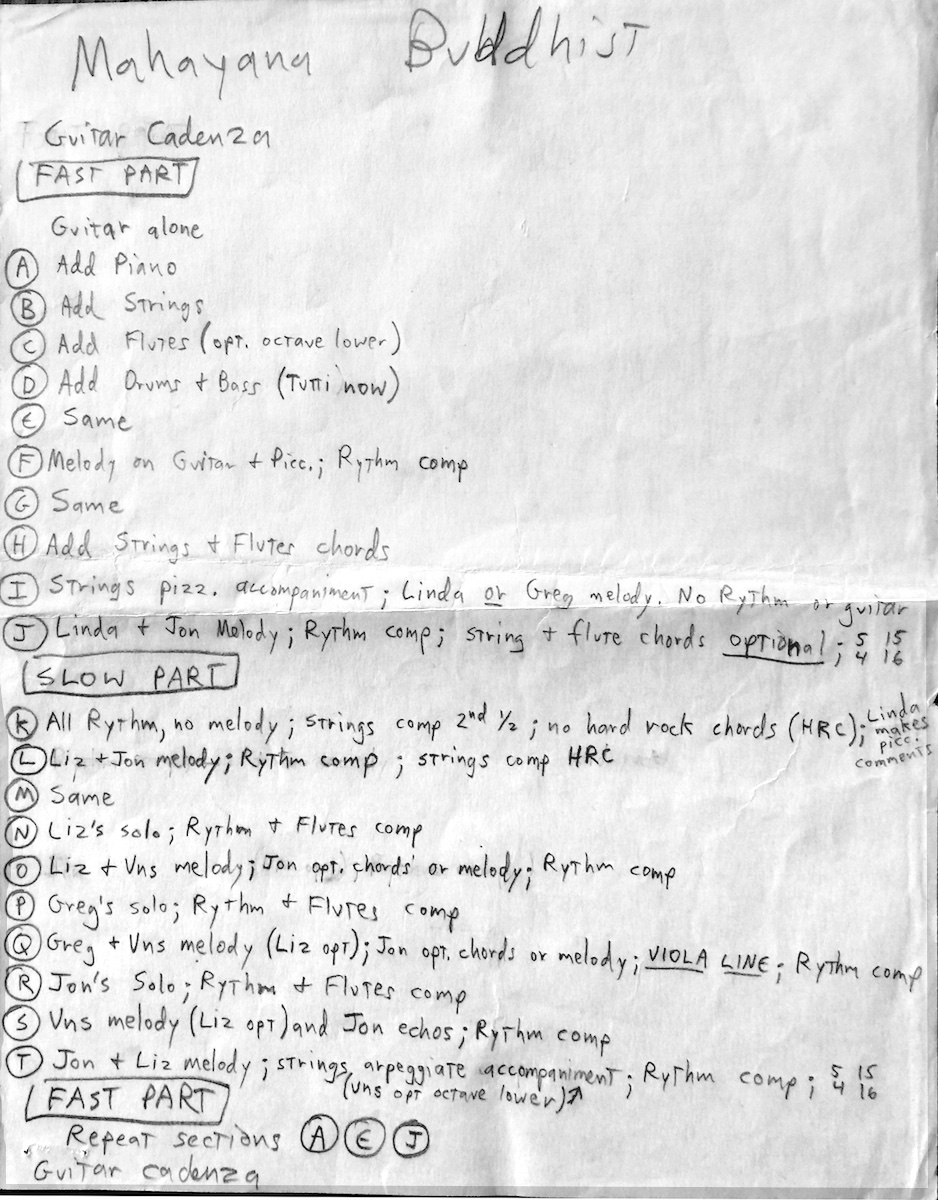 Mahayana Buddhist
Guitar Cadenza
FAST PART
Guitar alone
A Add Piano
B Add Strings
C Add Flutes (opt. octave lower)
D Add Drums + Bass (Tutti now)
E Same
F Melody on Guitar + Picc.; Rythm comp
G Same
H Add Strings + Flutes chords
I Strings pizz. accompaniment; Linda or Greg melody. No Rythm or guitar
J Linda + Jon Melody; Rythm comp; string + flute chords optional; 5/4 15/16
SLOW PART
K All Rythm, no melody; strings comp 2nd 1/2; no hard rock chords (HRC); Linda makes picc. comments
L Liz + Jon melody; Rythm comp; strings comp HRC
M Same
N Liz's solo; Rythm + Flutes comp
O Liz + Vns melody; Jon opt. chords or melody; Rythm comp
P Greg's solo; Rythm + Flutes comp
Q Greg + Vns melody (Liz opt); Jon opt. chords or melody; VIOLA LINE; Rythm comp
R Jon's Solo; Rythm + Flutes comp
S Vns melody (Liz opt) and Jon echos; Rythm comp
T Jon + Liz melody; strings arpeggiate accompaniment; Rythm comp; 5/4 15/16
(Vns opt octave lower)↗
FAST PART
Repeat sections A E J
Guitar cadenza